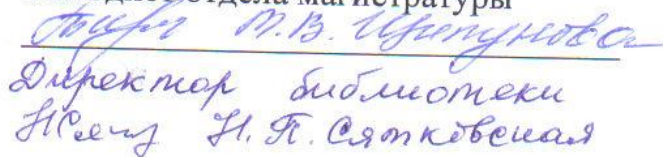 отдела магистратуры
М.В. Щипунова
Директор библиотеки
Н.П. Сятковская